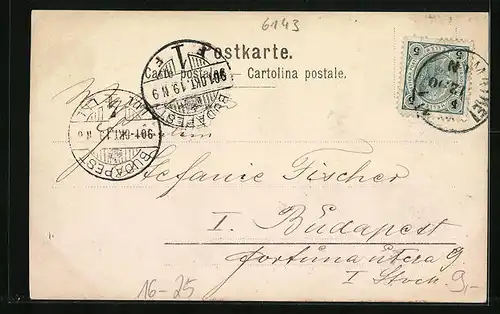 6143
Postkarte.
Carte postale. Cartolina postale.
5 5
5 5
BUDAPEST
901 OKT. 19. N 9
1
F F
BUDAPEST
901 OKT. 19 N 9
Stefanie Fischer
I. Budapest
fortuna utcza 9.
I Stock
16-25
9,-